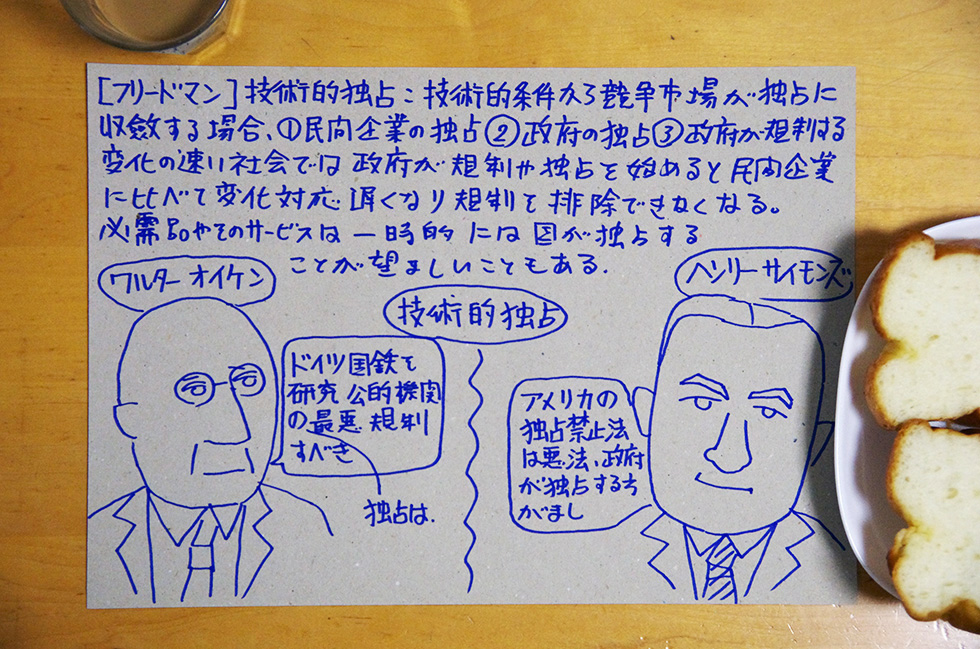 [フリードマン]技術的独占:技術的条件から競争市場が独占に
収斂する場合、①民間企業の独占②政府の独占③政府が規制する
変化の速い社会では政府が規制や独占を始めると民間企業
に比べて変化対応遅くなり規制を排除できなくなる。
必需品やそのサービスは一時的には国が独占する
ことが望ましいこともある.
ワルター オイケン
ヘンリー サイモンズ
技術的独占
ドイツ国鉄を
研究 公的機関
の最悪 規制
すべき
独占は.
アメリカの
独占禁止法
は悪法、政府
が独占する方
がまし